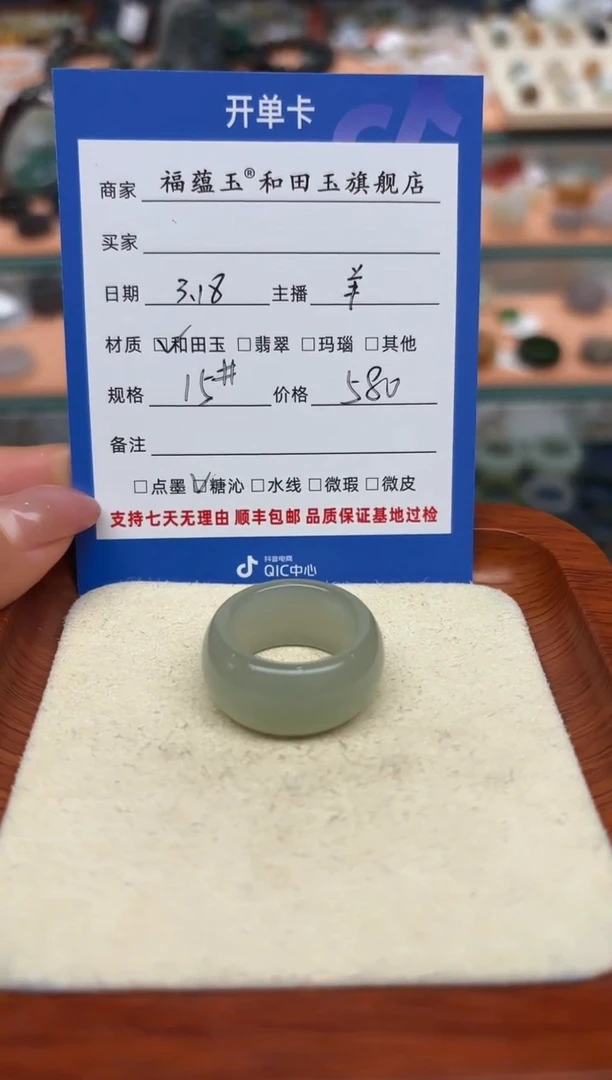 开单卡
商家 福蕴玉®和田玉旗舰店
买家
日期 3.18 主播 羊
材质 ☑和田玉 □翡翠 □玛瑙 □其他
规格 15# 价格 580
备注
□点墨 ☑糖沁 □水线 □微瑕 □微皮
支持七天无理由 顺丰包邮 品质保证基地过检
抖音电商
QIC中心